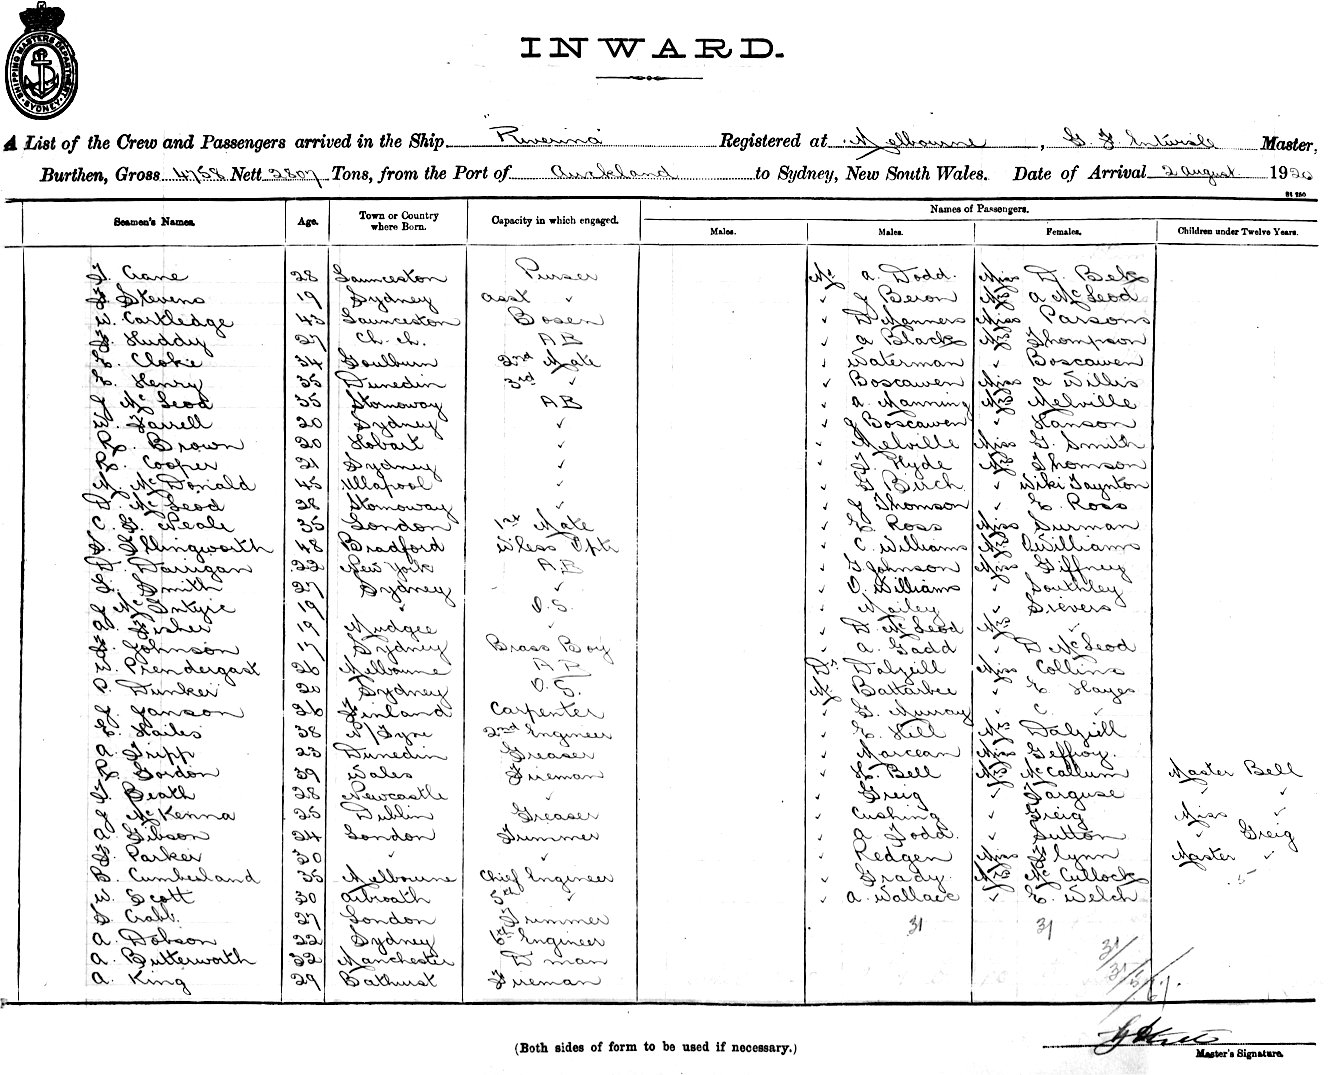 SHIPPING MASTERS DEPARTMENT SYDNEY
INWARD.
A List of the Crew and Passengers arrived in the Ship Riverina Registered at Melbourne, G. F. Entwisle Master,
Burthen, Gross 4758 Nett 2807 Tons, from the Port of Auckland to Sydney, New South Wales. Date of Arrival 2 August 1920
Seamen's Names. Age. Town or Country where Born. Capacity in which engaged. Names of Passengers.
Males. Males. Females. Children under Twelve Years.
Crane 28 Launceston Purser Mr A. Dodd. Miss D. Bek
Stevens 19 Sydney Asst " " Beron A McLeod
Cartledge 43 Launceston Bosen " Manners Miss Parsons
Huddy 27 Ch. Ch. AB " A Black Thompson
Clokie 34 Goulburn 2nd Mate " Waterman " Boscawen
Henry 35 Dunedin 3rd " " Boscawen Miss A Willis
McLeod 35 Stornoway AB " A. Manning Melville
Farrell 20 Sydney " " J Boscawen " Hanson
Brown 20 Hobart " " Melville Miss G Smith
Cooper 21 Sydney " " Hyde Thomson
McDonald 45 Ullapool " " Birch " Wiki Taynton
McLeod 28 Stornoway " " J Thomson " E. Ross
C. Neale 35 London 1st Mate " E Ross Miss Surman
Illingworth 48 Bradford W'less Optr " C. Williams Williams
Darrigan 22 New York AB " Johnson Miss Giffney
Smith 27 Sydney " " O. Williams " Southley
McIntyre 19 " O.S. " Mailey " Sievers
Fisher 19 Mudgee " " D. McLeod Mrs "
Johnson 17 Sydney Brass Boy " A. Gadd " D McLeod
Prendergast 26 Melbourne AB Dr. Dalzill Miss Collins
Dunker 20 Sydney O.S. Mr Battarbee " E. Hayes
J Janson 26 Finland Carpenter " G. Murray " C. "
Hailes 38 N/Tyne 2nd Engineer " E. Hill Mrs Dalzill
A. Tripp 23 Dunedin Greaser " Marcean Miss Geffroy.
Gordon 39 Wales Fireman " H. Bell McCallum Master Bell
Heath 28 Newcastle " " Greig " Farguse " "
J McKenna 25 Dublin Greaser " Cushing " Greig Miss "
A Gibson 24 London Trimmer " A Todd " Sutton " Greig
Parker 30 " " " Redgen Miss Flynn Master "
B. Cumberland 35 Melbourne Chief Engineer " Grady McCullock 5
W. Scott 30 Arbroath 5th " " A. Wallace " E. Welch
Crabb 27 London Trimmer 31 31
A. Dobson 22 Sydney 6th Engineer
A. Butterworth 32 Manchester D man 31/31/5/67
A. King 29 Bathurst Fireman
(Both sides of form to be used if necessary.)
Master's Signature.